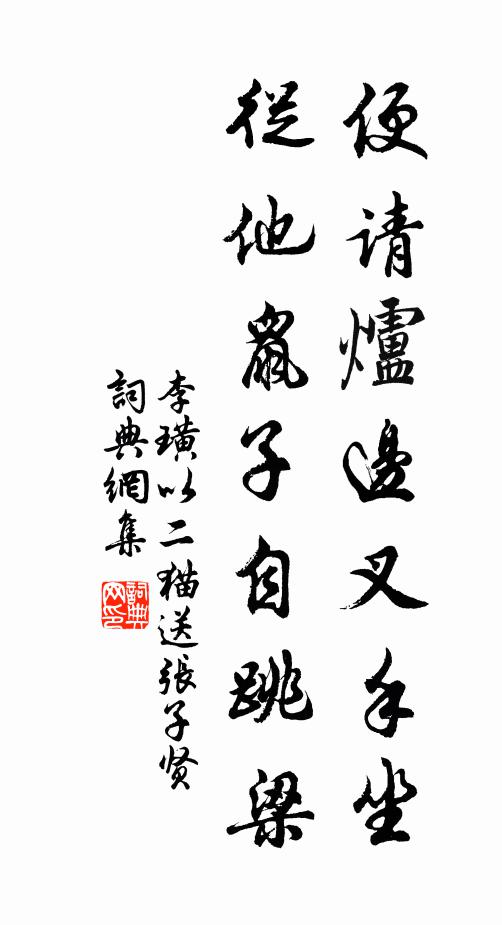 便请爐邊叉手坐
從他鼠子自跳梁
李璜以二猫送張子贤
詞典網集
詞典网印